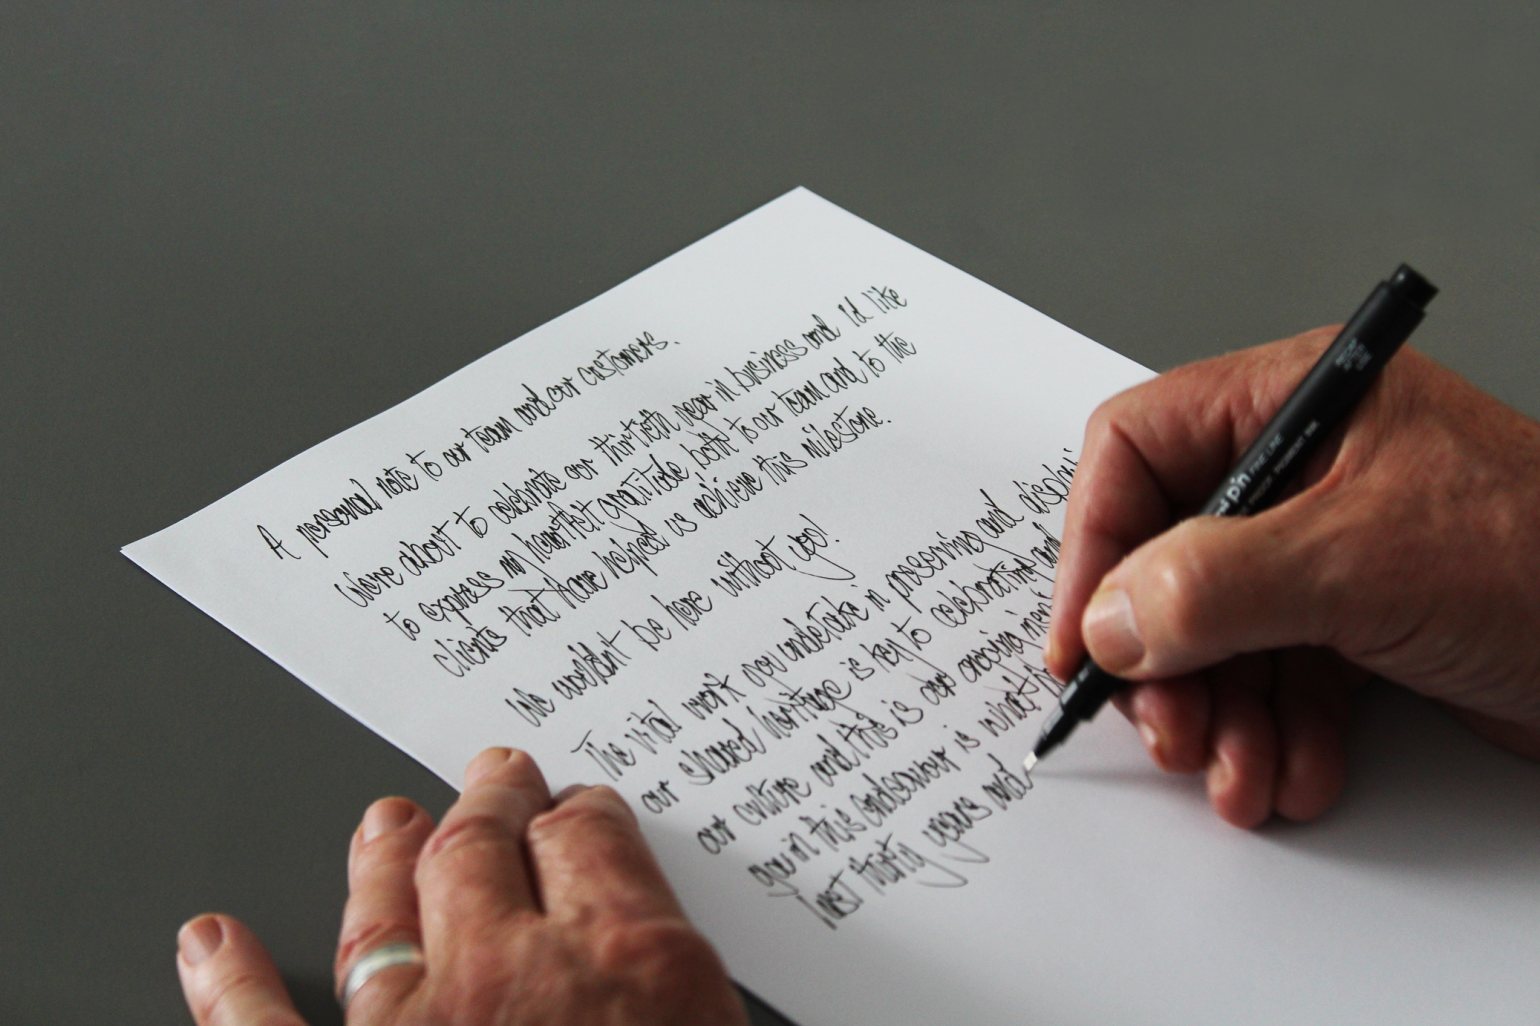 A personal note to our team and our customers.
We're about to celebrate our thirtieth year in business and I'd like
to express my heartfelt gratitude, both to our team and to the
clients that have helped us achieve this milestone.
We wouldn't be here without you!
The vital work you undertake in preserving and
our shared heritage is key to celebrating and
our culture and this is
you in this endeavour is what
last thirty years and
pin
FINE LINE